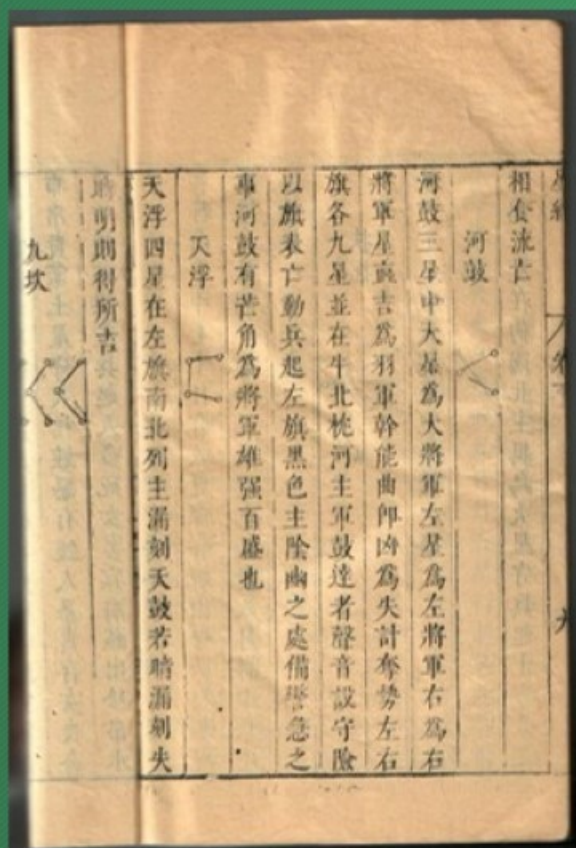 星經 卷下 九
相食流亡
河鼓
河鼓三星中大星為大將軍左星為左將軍右為右
將軍星直吉為羽軍幹能曲卽凶為失計奪勢左右
旗各九星並在牛北枕河主軍鼓達者聲音設守險
以旗表亡動兵起左旗黑色主陰幽之處備警急之
事河鼓有芒角為將軍雄强百盛也
天浮
天浮四星在左旗南北列主漏刻天鼓若暗漏刻失
明則得所吉
九坎